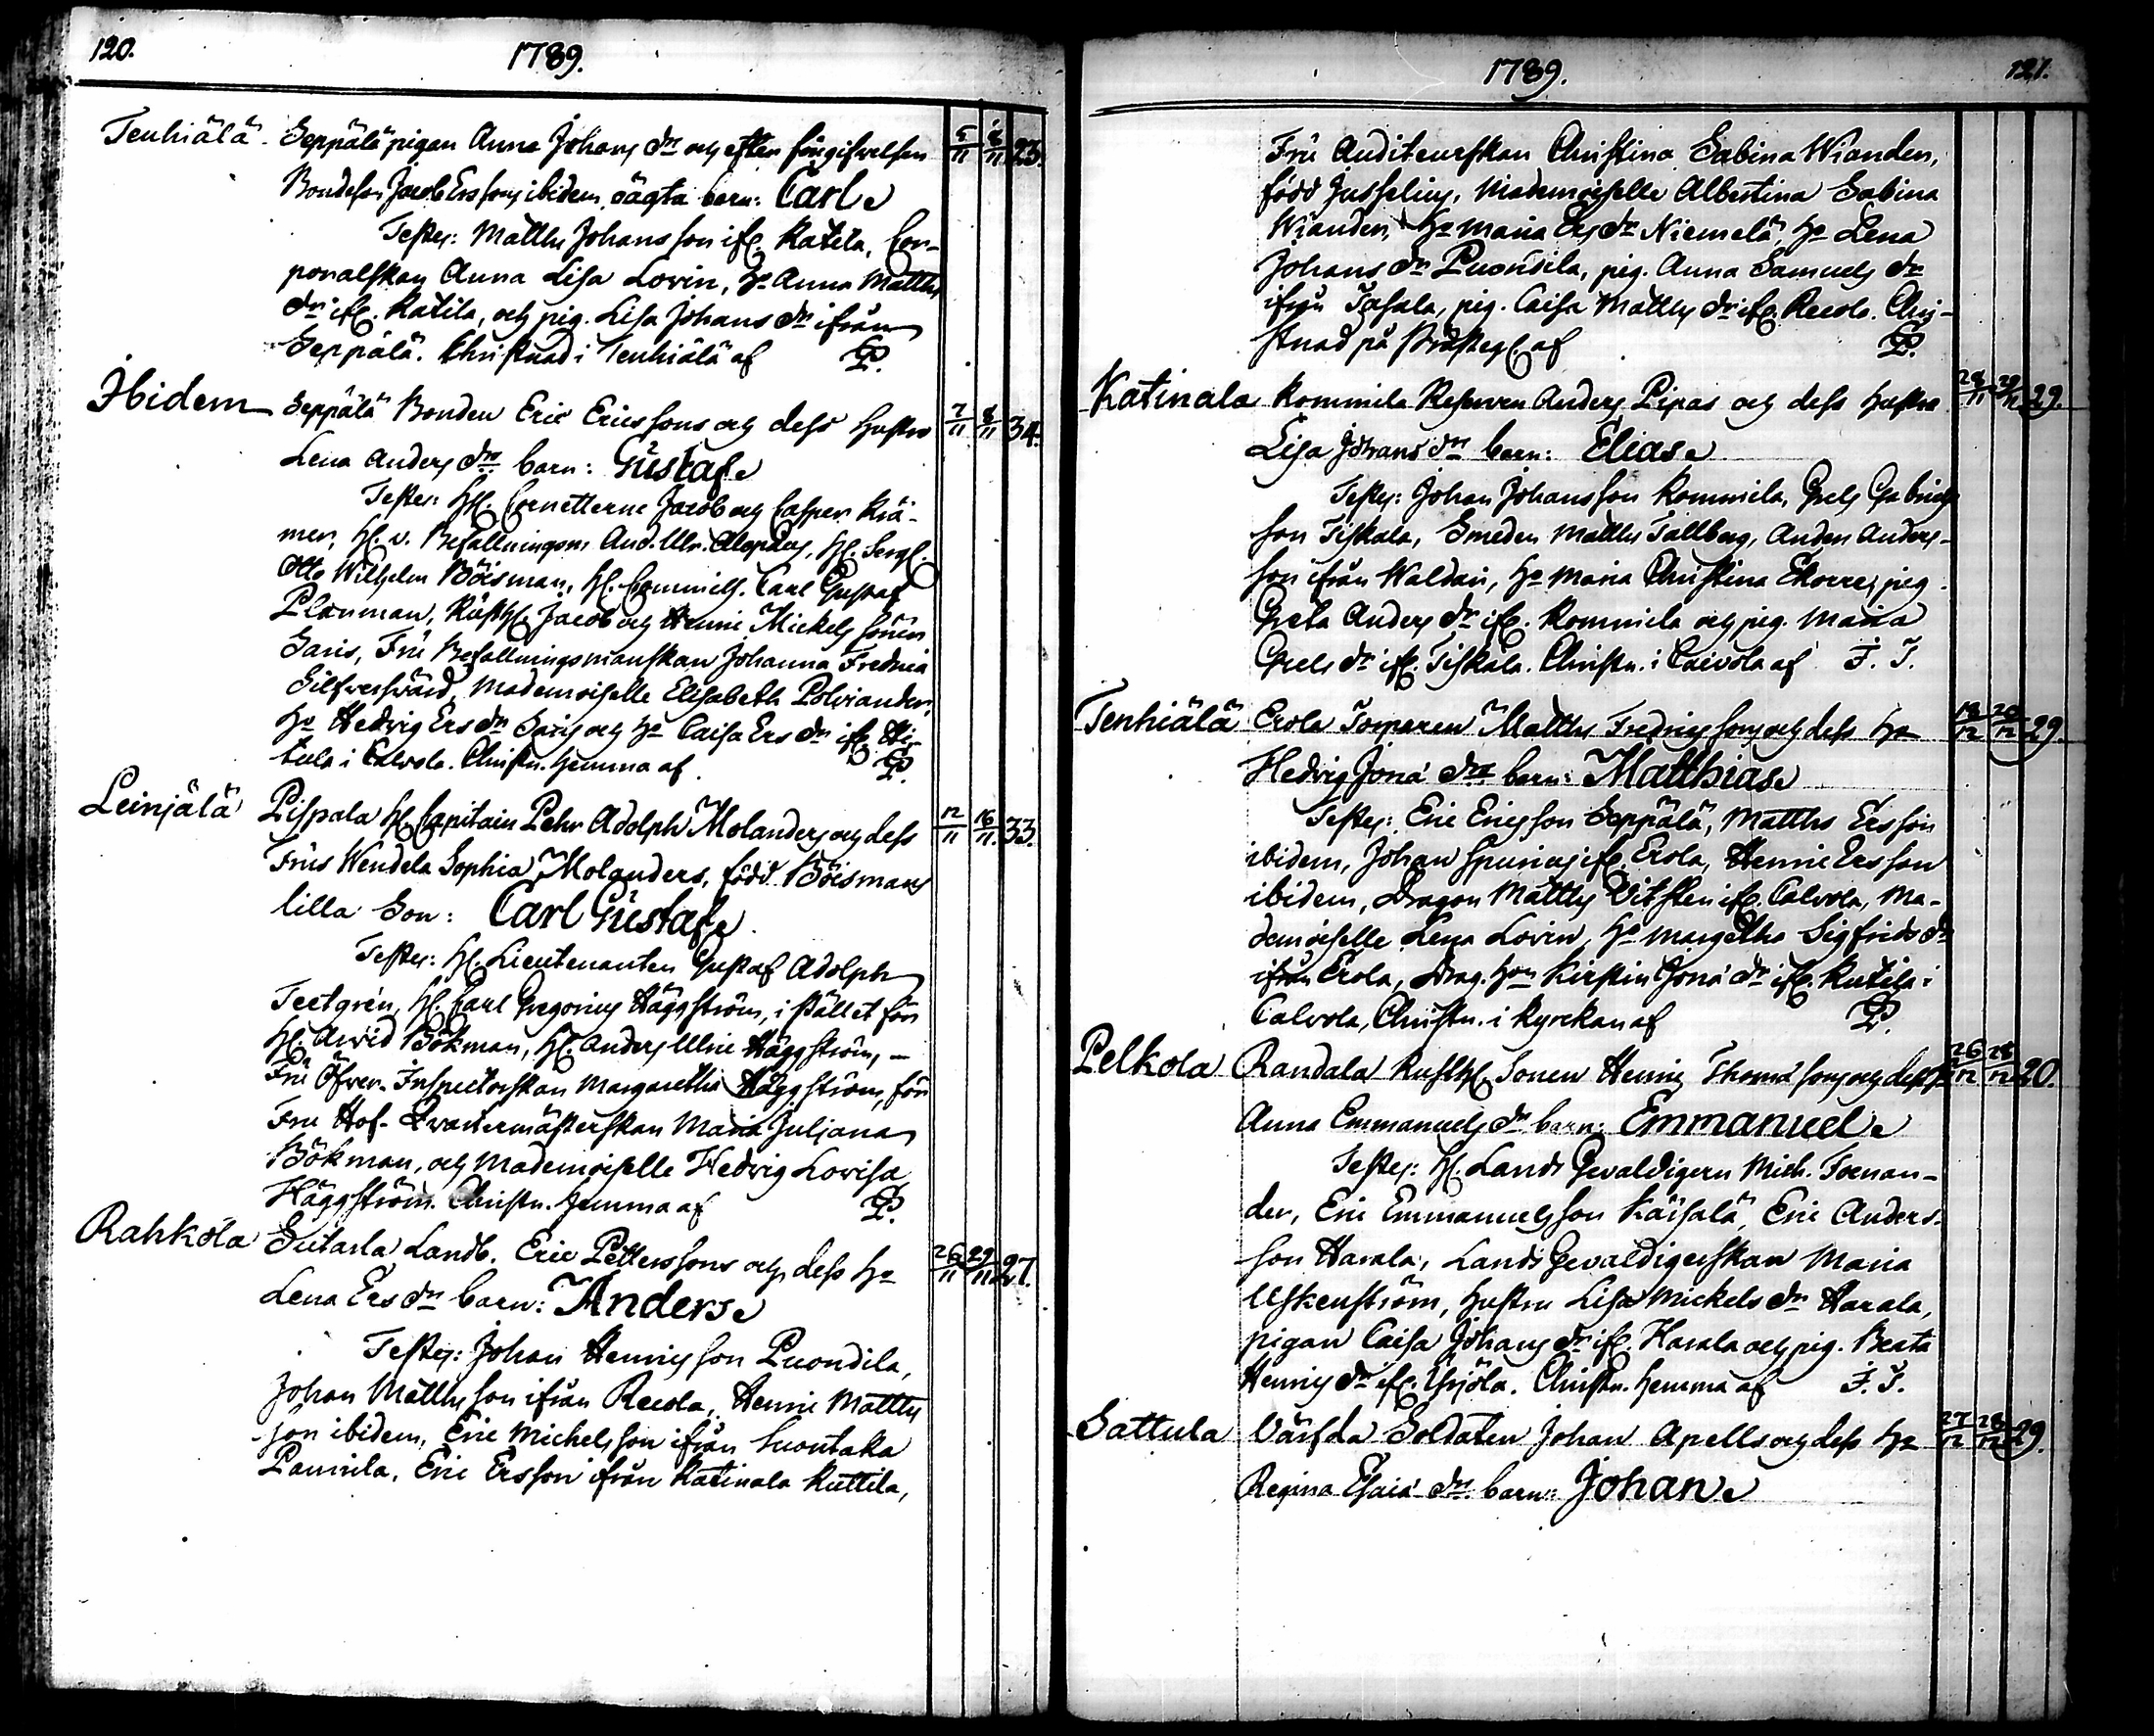 120.
1789.
Tenhiälä Seppälä pigan Anna Johans dr och efter föregifwelsen 5/11 8/11 23.
Bondeson Jacob Erssons ibidem oägta barn: Carl
Testes: Matths Johansson ifr. Katila, Cor-
poralskan Anna Lisa Lovin, ha Anna Matths
dr ifr. Katila, och pig. Lisa Johans dr ifrån
Seppälä. Christnad i Tenhiälä af P.
Ibidem Seppälä Bonden Eric Ericssons och dess hustru 7/11 8/11 34.
Lena Anders dr barn: Gustaf
Testes: Hr. Cornetterne Jacob och Casper Krä-
mer, Hr. v. Befallningsm. And. Ulr. Alopæus, Hr. Serg.
Otto Wilhelm Böisman, Hr. Commiss. Carl Gustaf
Planman, Rusth. Jacob och Henric Mickels söner
Saris, Fru Befallningsmanskan Johanna Fredrica
Silfversvärd, Mademoiselle Elisabeth Polviander,
ha Hedvig Ers dr Saris och ha Caisa Ers dr ifr. Hi-
tula i Calvola. Christn. hemma af P.
Leinjälä Pispala Hr. Capitain Pehr Adolph Molanders och dess 12/11 16/11 33.
Frus Wendela Sophia Molanders, född Böismans
lilla Son: Carl Gustaf
Testes: Hr. Lieutenanten Gustaf Adolph
Teetgrén, Hr. Carl Gregorius Häggström, i stället för
Hr. Arvid Bökman, Hr. Anders Ulric Häggström, –
Fru Öfver-Inspectorskan Margaretha Häggström, för
Fru Hof-Qvartermästerskan Maria Juliana
Bökman, och Mademoiselle Hedvig Lovisa
Häggström. Christn. hemma af P.
Rahkola Sutarla Landb. Eric Petterssons och dess ha 26/11 29/11 27.
Lena Ers dr barn: Anders
Testes: Johan Henricsson Puondila,
Johan Matthsson ifrån Recola, Henric Matths
son ibidem, Eric Michelsson ifrån Suontaka
Paunila, Eric Ersson ifrån Katinala Kuttila,
1789.
121.
Fru Auditeurskan Christina Sabina Wianden,
född Jusselius, Mademoiselle Albertina Sabina
Wianden, ha Maria Ers dr Niemelä, ha Lena
Johans dr Puonsila, pig. Anna Samuels dr
ifrån Tasala, pig. Caisa Matths dr ifr. Recola. Chri-
stnad på Prästeg. af P.
Katinala Kommila Reserven Anders Pipas och dess hustru 28/11 29/11 29.
Lisa Johans dr barn: Elias
Testes: Johan Johansson Kommila, Grels Gabriels
son Tiskala, Smeden Matths Tallberg, Anders Anders-
son ifrån Waldari, ha Maria Christina Ekorre, pig.
Greta Anders dr ifr. Kommila och pig. Maria
Grels dr ifr. Tiskala. Christn. i Caivola af F. T.
Tenhiälä Erola Torparen Matths Fredricssons och dess ha 19/12 20/12 29.
Hedvig Jonæ dr barn: Matthias
Testes: Eric Ericsson Seppälä, Matths Ersson
ibidem, Johan Spurias ifr. Erola, Henric Ersson
ibidem, Dragon Matths Vitsten ifr. Calvola, Ma-
demoiselle Lena Lovin, ha Margetha Sigfrids dr
ifrån Erola, Drag. hon Kirstin Jonæ dr ifr. Kutila i
Calvola, Christn. i Kyrckan af P.
Pelkola Randala Rusth. Sonen Henric Thomæ sons och dess h. 26/12 28/12 20.
Anna Emmanuels dr barn: Emmanuel
Testes: Hr. Lands Gevaldigern Mich. Foenan-
der, Eric Emmanuelsson Käisalä, Eric Anders-
son Harala, Lands Gevaldigerskan Maria
Uskenström, hustru Lisa Mickels dr Harala,
pigan Caisa Johans dr ifr. Harala och pig. Beata
Henrics dr ifr. Yrjölä. Christn. hemma af F. T.
Sattula Värfda Soldaten Johan Apells och dess ha 27/12 28/12 29.
Regina Esaiæ dr barn: Johan